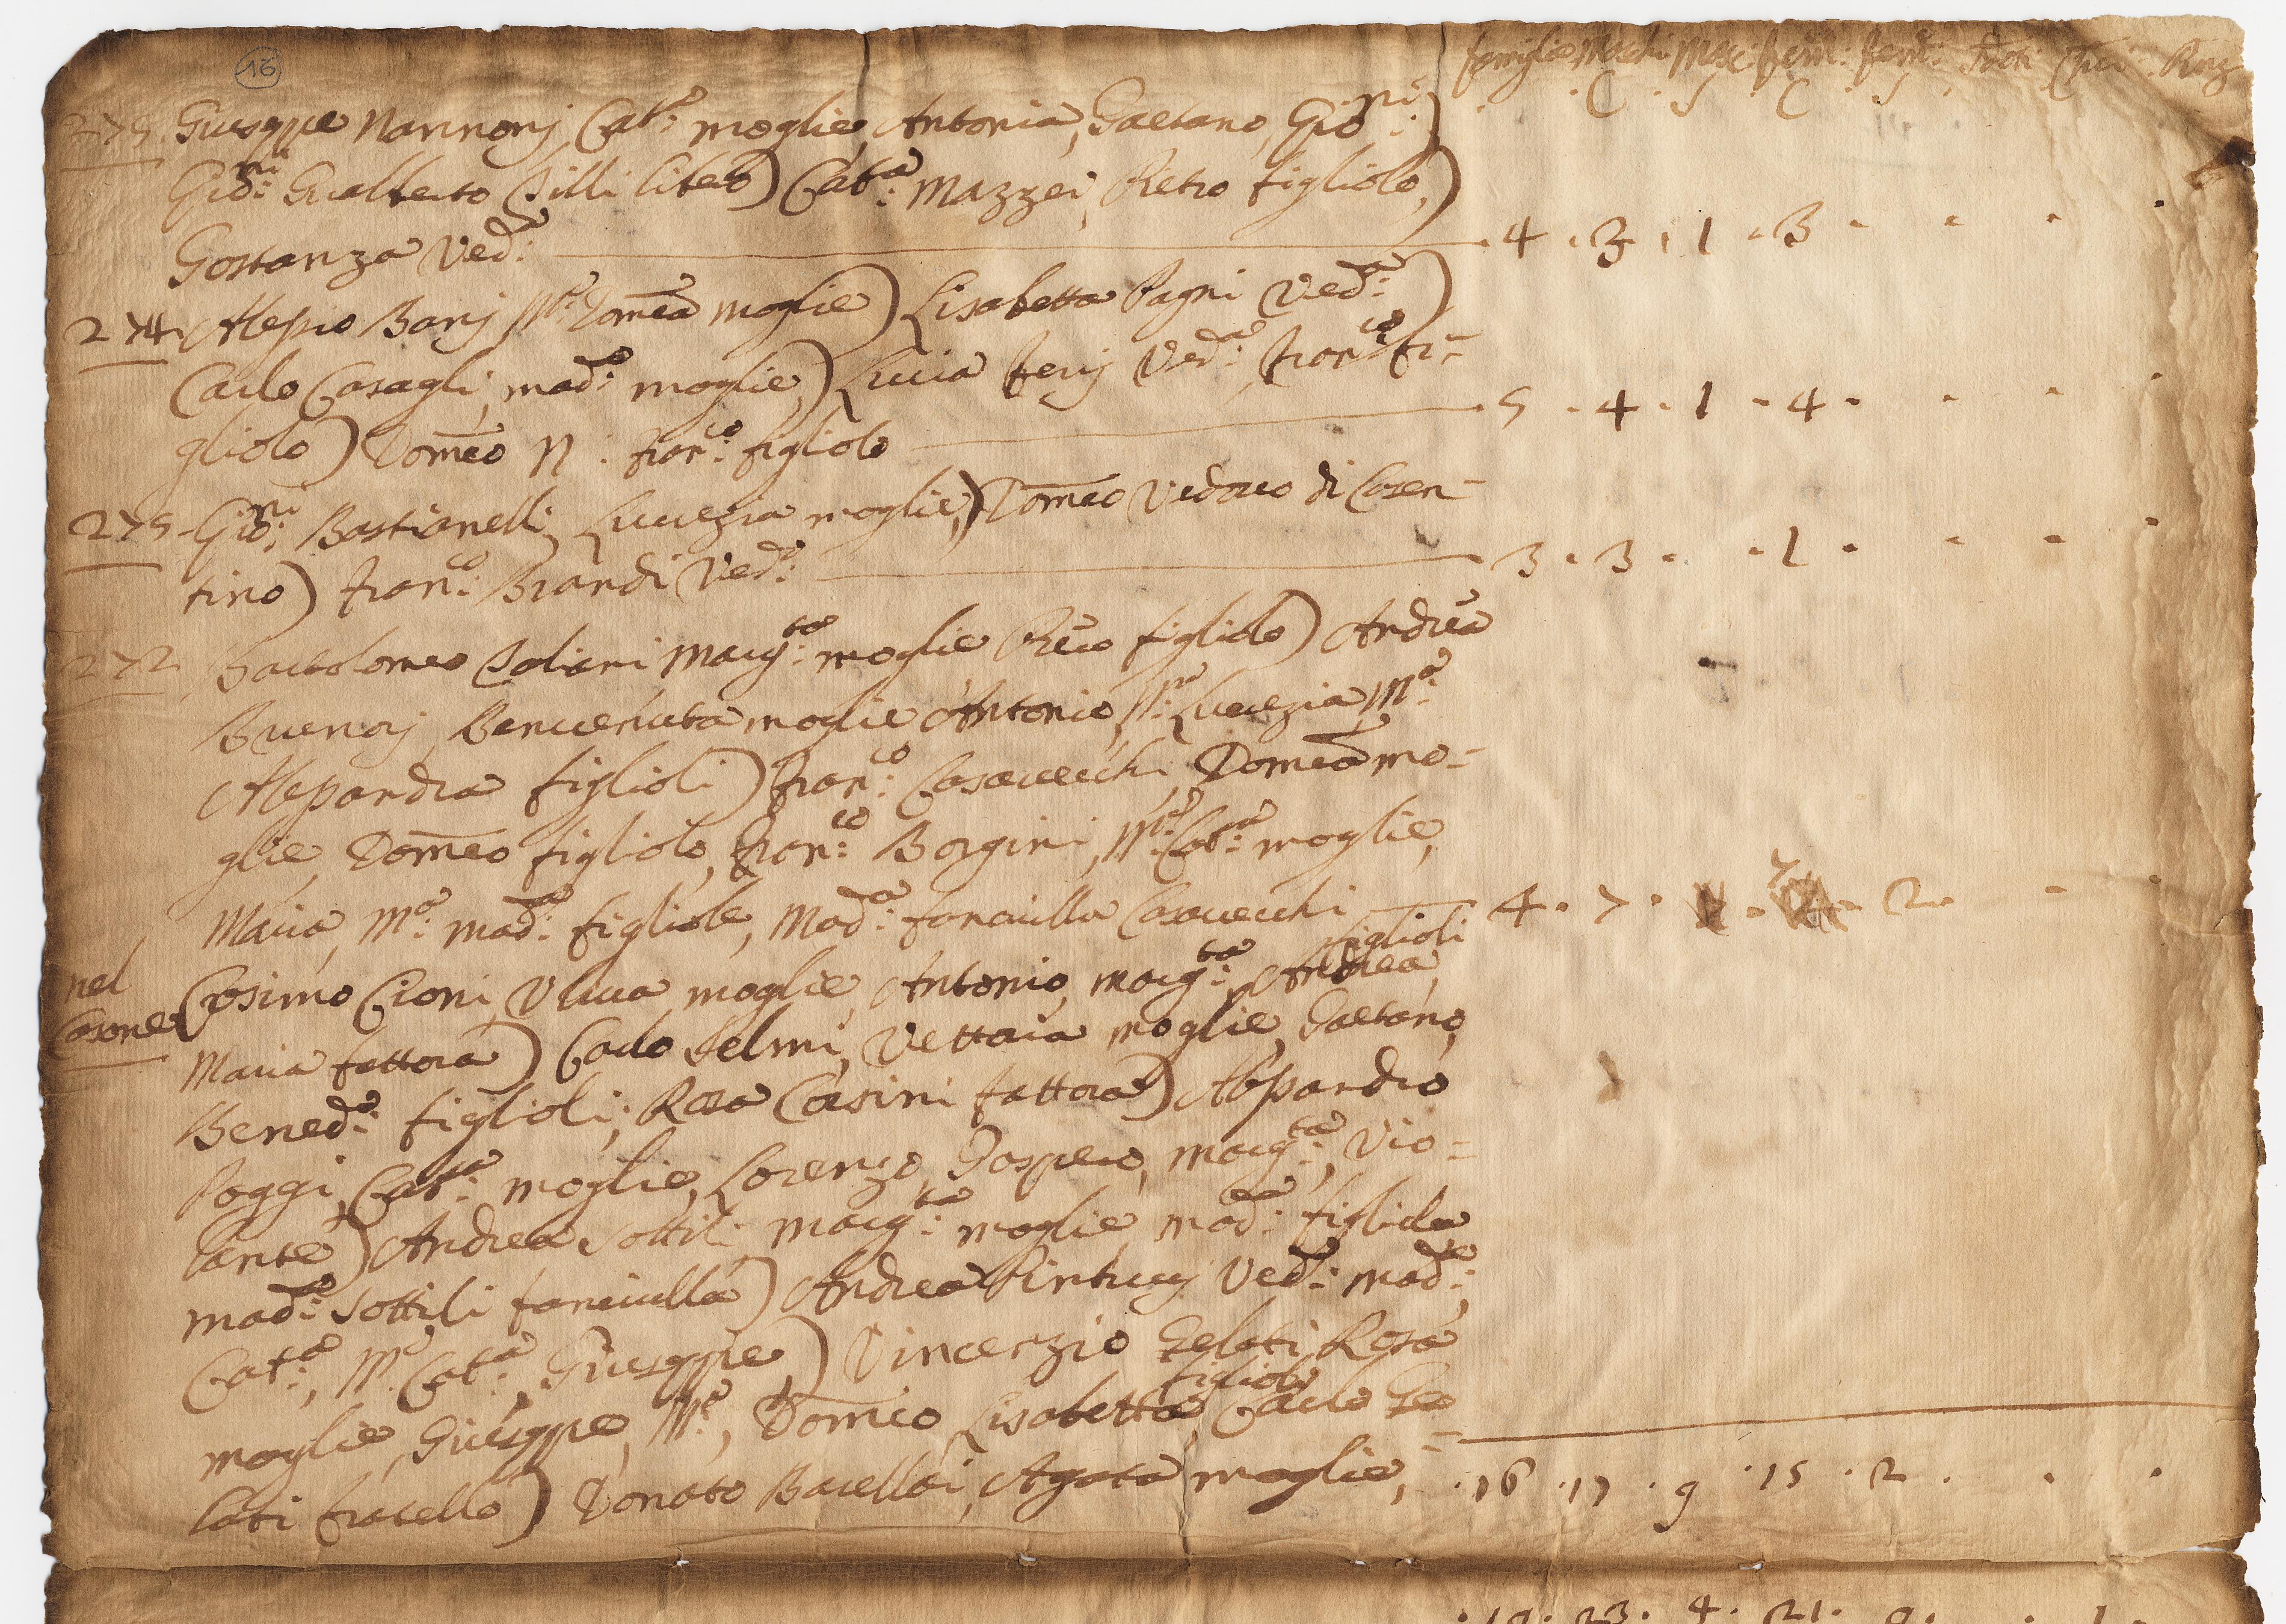 16
famiglie Maschi Masc: fem: fem: Preti Cheri
. C . S . C . S .
275 Giuseppe Nannonj Cat.a: moglie, Antonia, Gaetano, Gio:ni)
Gio:ni Gualberto Silli libero) Cat:a Mazzei, Pietro figliolo,)
Gostanza Ved:a . 4 . 3 . 1 . 3 . . . .
274. Alesso Barj M:a Domca moglie) Lisabetta Pagni Ved:a)
Carlo Casagli, mad:a moglie,) Lucia ferrj Ved:a, fran:co fi=
gliolo) Domco N: fran:co figliolo . 5 . 4 . 1 . 4 . . . .
275 - Gio:ni Bastianelli, Lucrezia moglie,) Domco Vedovo di Casen=
tino) fran:co Brandi Ved:o . 3 . 3 . . 1 . . . .
272 Bartolomeo Soliani Marg:ta moglie Piero figliolo) Andrea
Benvenuta moglie Antonio, M:a Lucrezia, M:a
Alessandra figlioli) fran:co Casavecchi, Domca mo=
glie, Domco figliolo, fran:co Borgini, M:a Cat:a moglie,
Maria, M:a mad:a figliole, Mad:a fanciulla Casavecchi 4 . 7 . . 7 . 2 . . .
nel figlioli
Casone Cosimo Cioni, moglie, Antonio, marg:ta, Andrea,
Maria fattora) Carlo Selmi, Vettoria moglie, Gaetano,
Bened:o figlioli; Rosa Casini fattora) Alessandro
Poggi, Cat:a moglie, Lorenzo, Gaspero, marg:ta, Vio=
lante) Andrea Sottili marg:ta moglie, mad:a figliola
mad:a Sottili fanciulla) Andrea Pintucj Ved:o mad:a,
Cat:a, M:a Cat:a, Giuseppe,) Vincenzio Gelati, Rosa
figlioli
moglie, Giuseppe, M:a, Domco, Lisabetta, Carlo Ge=
lati fratello) Donato Bacellai, Agata moglie, . 16 . 17 . 9 . 15 . 2 . . .
. 19 . 23 . 4 . 21 .